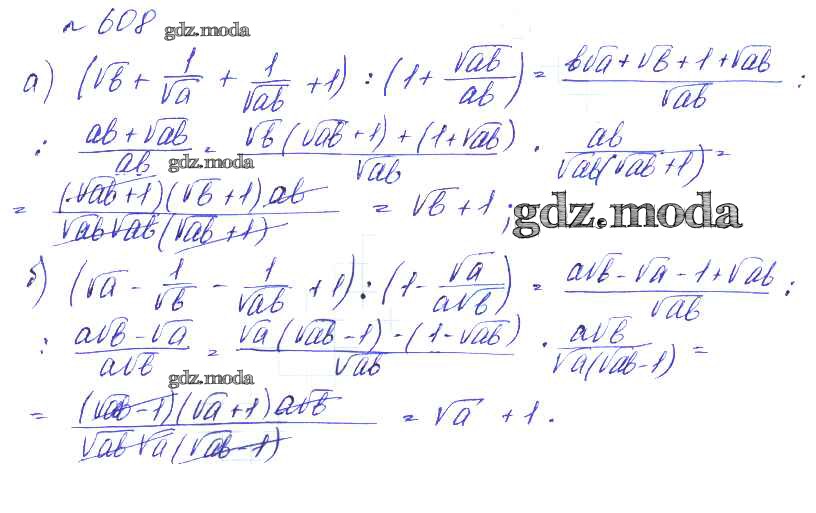 № 608 gdz.moda
а) (√b + 1/√a + 1/√ab + 1) : (1 + √ab/ab) = (b√a + √b + 1 + √ab)/√ab :
: (ab + √ab)/ab = (√b(√ab + 1) + (1 + √ab))/√ab · ab/(√ab(√ab + 1)) =
gdz.moda
= ((√ab + 1)(√b + 1)ab)/(√ab√ab(√ab + 1)) = √b + 1; gdz.moda
б) (√a - 1/√b - 1/√ab + 1) : (1 - √a/a√b) = (a√b - √a - 1 + √ab)/√ab :
: (a√b - √a)/a√b = (√a(√ab - 1) - (1 - √ab))/√ab · a√b/(√a(√ab - 1)) =
gdz.moda
= ((√ab - 1)(√a + 1)a√b)/(√ab√a(√ab - 1)) = √a + 1.